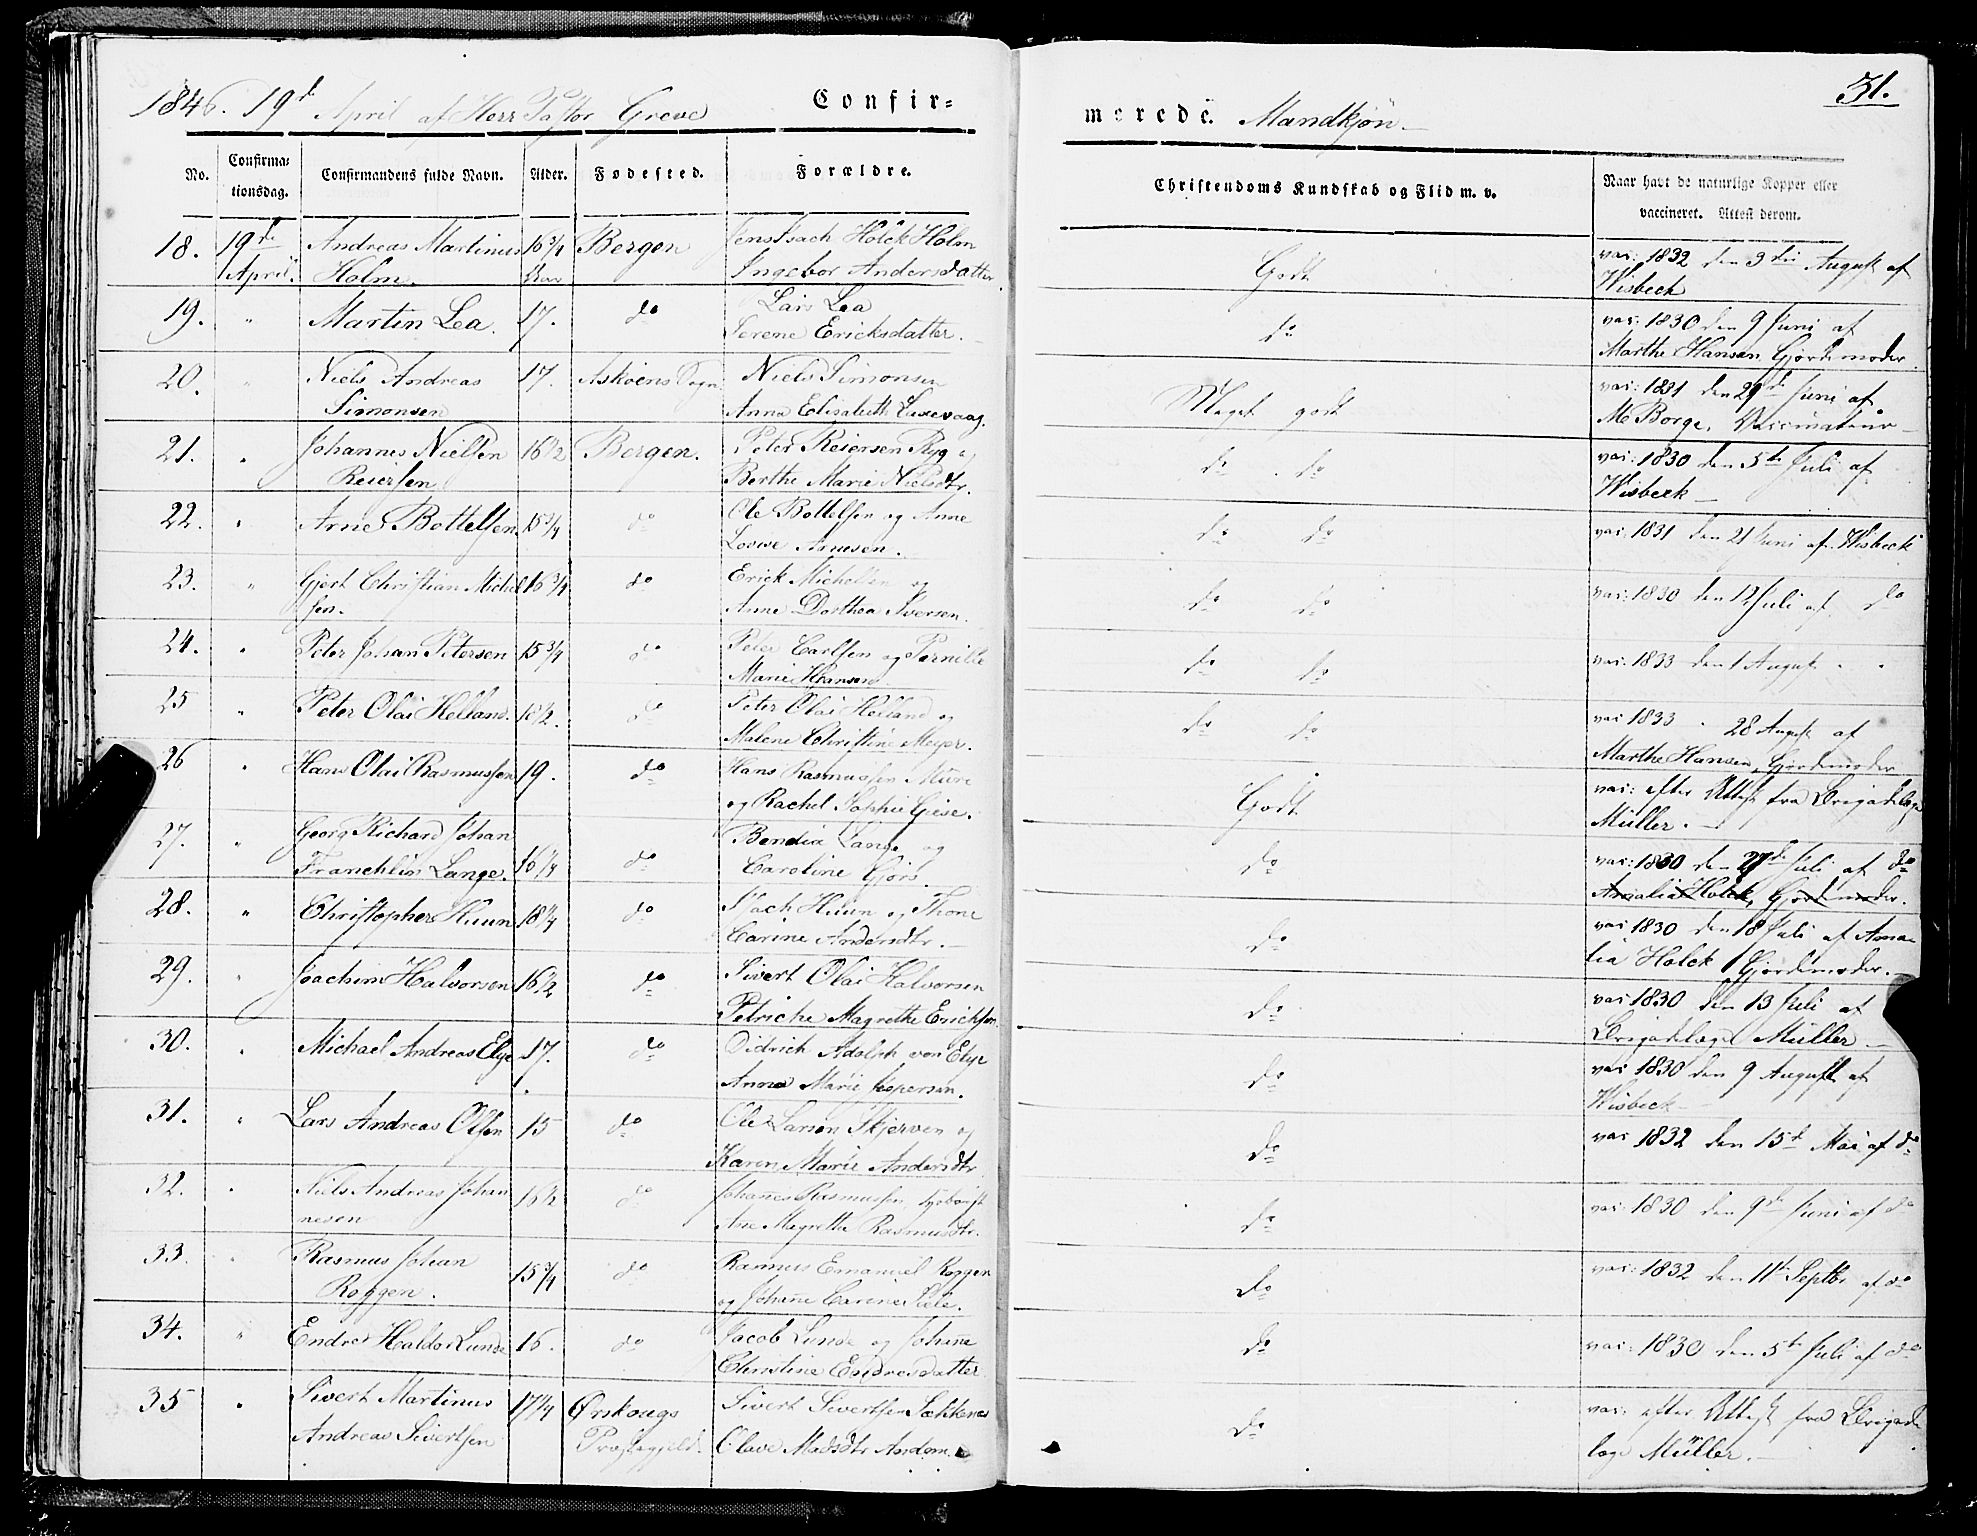 1846. 19d April af Herr Pastor Greve
Confir=
merede. Mandkjøn
31.
No.
Confirma=
tionsdag.
Confirmandens fulde Navn.
Alder.
Fødested.
Forældre.
Christendoms Kundskab og Flid m. v.
Naar havt de naturlige Kopper eller
vaccineret. Attest derom.
18. 19de Andreas Martinus 16 3/4 Bergen Jens Isach Holck Holm Godt vac: 1832 den 3die August af
April. Holm. Aar Ingebor Andersdatter Wisbeck
19. " Martin Lea. 17. do Lars Lea do vac: 1830 den 9 Juni af
Serene Ericksdatter. Marthe Hansen, Gjordemoder
20. " Niels Andreas 17. Askøens Sogn Niels Simonsen Meget godt vac: 1831 den 29de Juni af
Simonsen Anna Elisabeth Laxevaag. M Borge, Vaccinateur
21. " Johannes Nielsen 16 1/2 Bergen. Peter Reiersen Ryg og do do vac: 1830 den 5te Juli af
Reiersen Berthe Marie Nielsdtr. Wisbeck
22. " Arne Bottelsen 15 3/4 do Ole Bottelsen og Anne do do vac: 1831 den 21 Juni af Wisbeck
Lovise Arnesen.
23. " Gjert Christian Michel 16 3/4 do Erick Michelsen og do do vac: 1830 den 12 Juli af do
sen. Anne Dorthea Iversen.
24. " Peter Johan Petersen 15 3/4 do Peter Carlsen og Pernille do do vac: 1833 den 1 August " "
Marie Hansen
25 " Peter Olai Helland. 15 1/2. do Peter Olai Helland og do do vac 1833 " 28 August af
Malene Christine Meyer. Marthe Hansen, Gjordemoder
26 " Hans Olai Rasmussen 19. do Hans Rasmussen Mure Godt vac: efter Attest fra Brigadelæge
og Rachel Sophie Giese. Müller.
27. " Georg Richard Johan 16 1/4 do Bendix Lange og do vac: 1830 den 27de Juli af do
Franchlin Lange. Caroline Gjörs. Amalia Holck, Gjordemoder.
28. " Christopher Huun 18 1/4 do Isach Huun og Thone do vac 1830 den 18 Juli af Ama
Carine Andersdtr. lia Holck Gjordemoder.
29. " Joachim Halvorsen 16 1/2 do Sivert Olai Halvorsen do vac 1830 den 13 Juli af
Petriche Magrethe Erichsen Brigadelæge Müller
30. " Michael Andreas Elye 17. do Didrich Adolph von Elye do vac 1830 den 9 August af
Anna Marie Jespersen. Wisbeck
31. " Lars Andreas Olsen 15 do Ole Larsen Skjerven og do vac 1832 den 15d Mai af do
Karen Marie Andersdtr
32. " Niels Andreas Johan 16 1/2 do Johannes Rasmussen do vac: 1830 den 9de Juni af do
nesen Ane Magrethe Rasmusdtr.
33. " Rasmus Johan 15 3/4 do Rasmus Emanuel Roggen do vac: 1832 den 11te Septbr af do
Roggen. og Johanne Carine Sæle.
34. " Endre Haldor Lunde 16. do Jacob Lunde og Johanne do vac: 1830 den 5te Juli af do
Christine Endresdatter
35 " Sivert Martinus 17 1/4 Ørskougs Sivert Sivertsen Sækkenes do vac: efter Attest fra Brigade
Andreas Sivertsen Præstegjeld. Olave Madsdtr Andom. læge Müller.